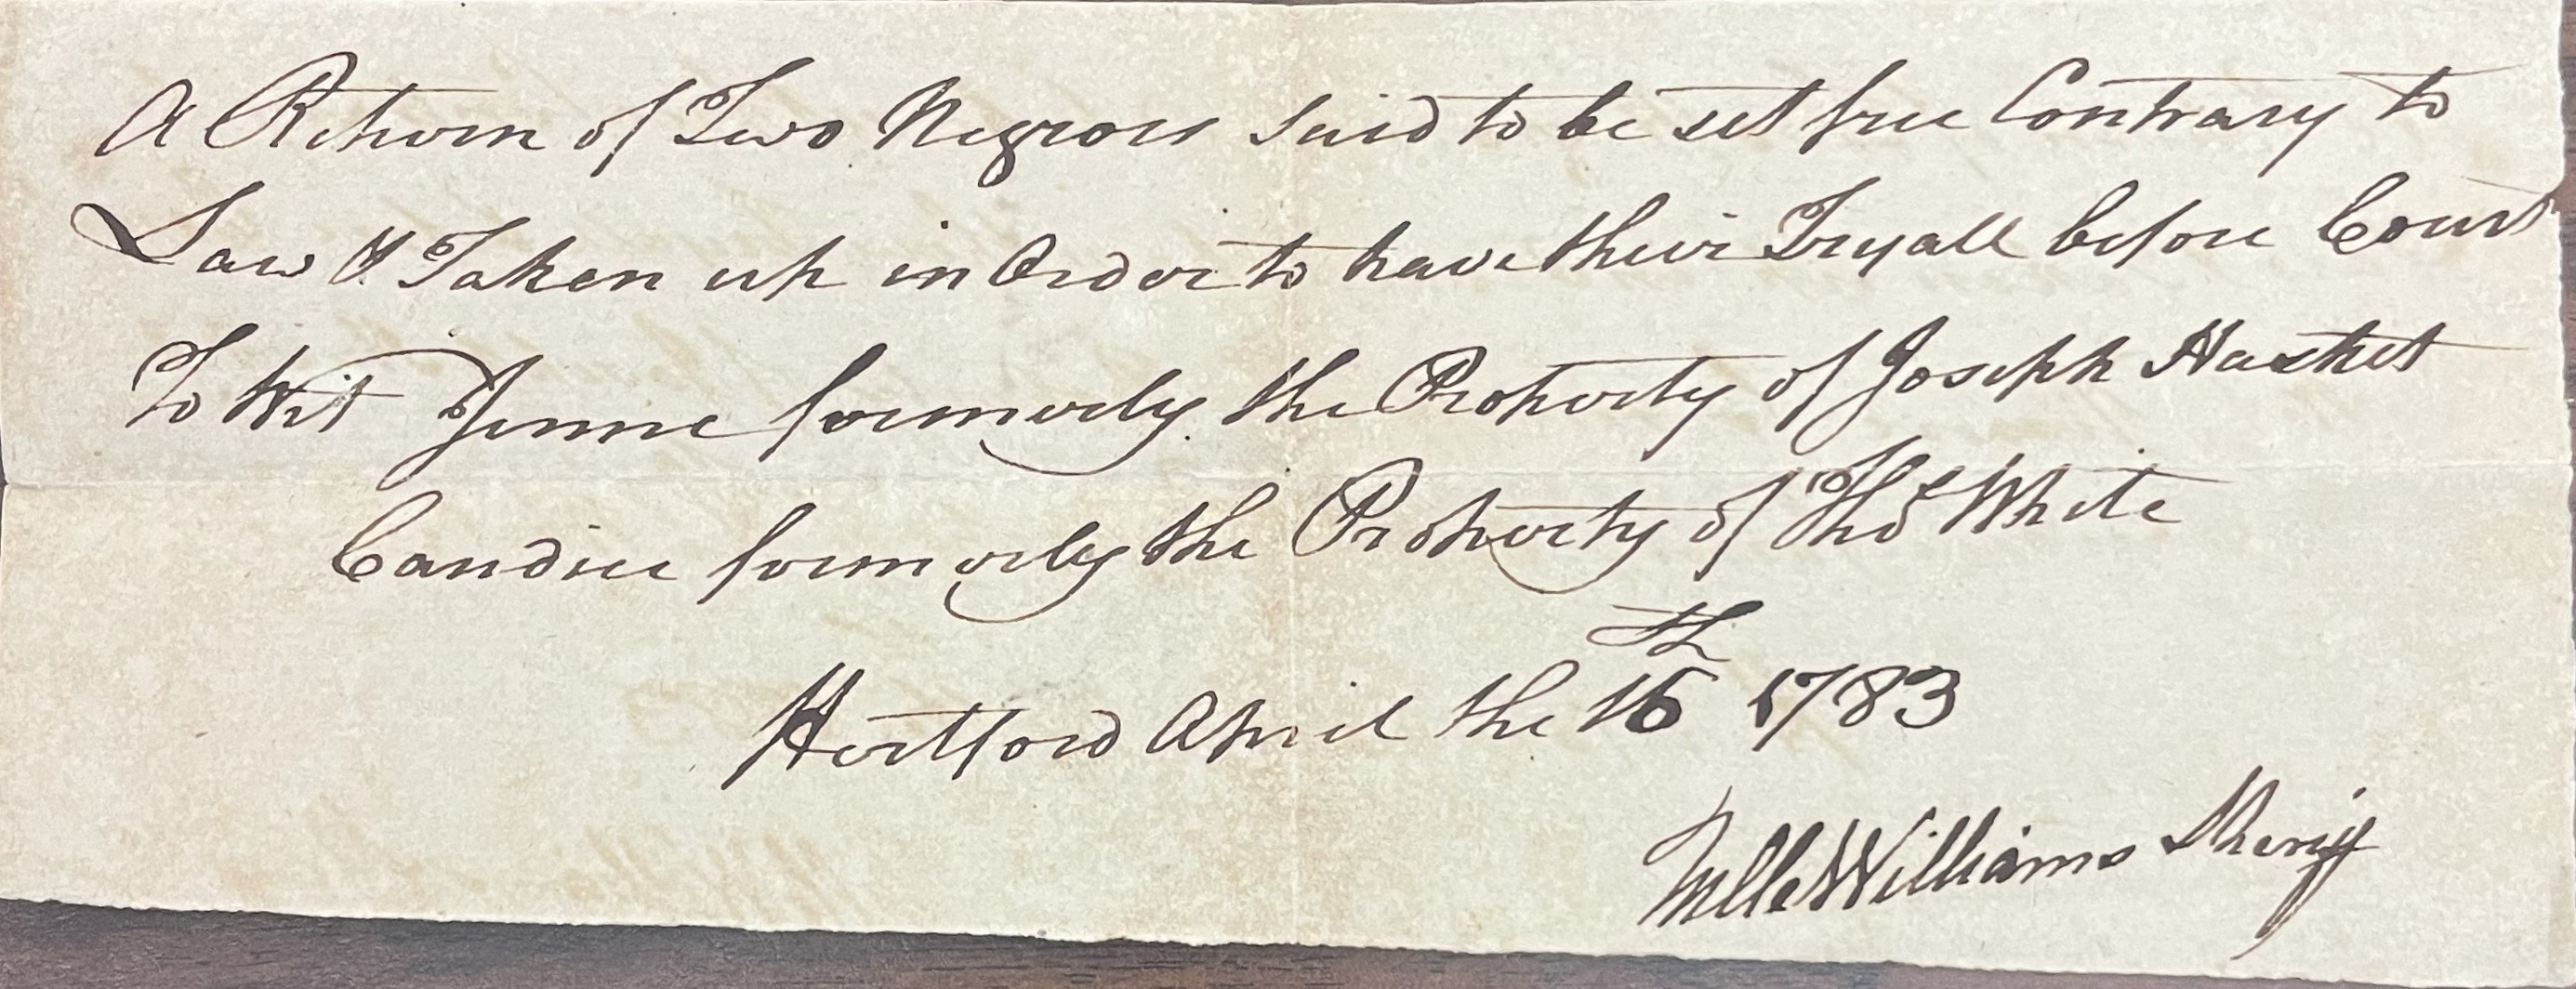 A Return of Two Negroes Said to be set free Contrary to
Law & Taken up in Order to have their Tryall before Court
To Wit Jenne formerly the Property of Joseph Hasket
Candice formerly the Property of Thos White
Hertford April the 16th 1783
Williams Sheriff